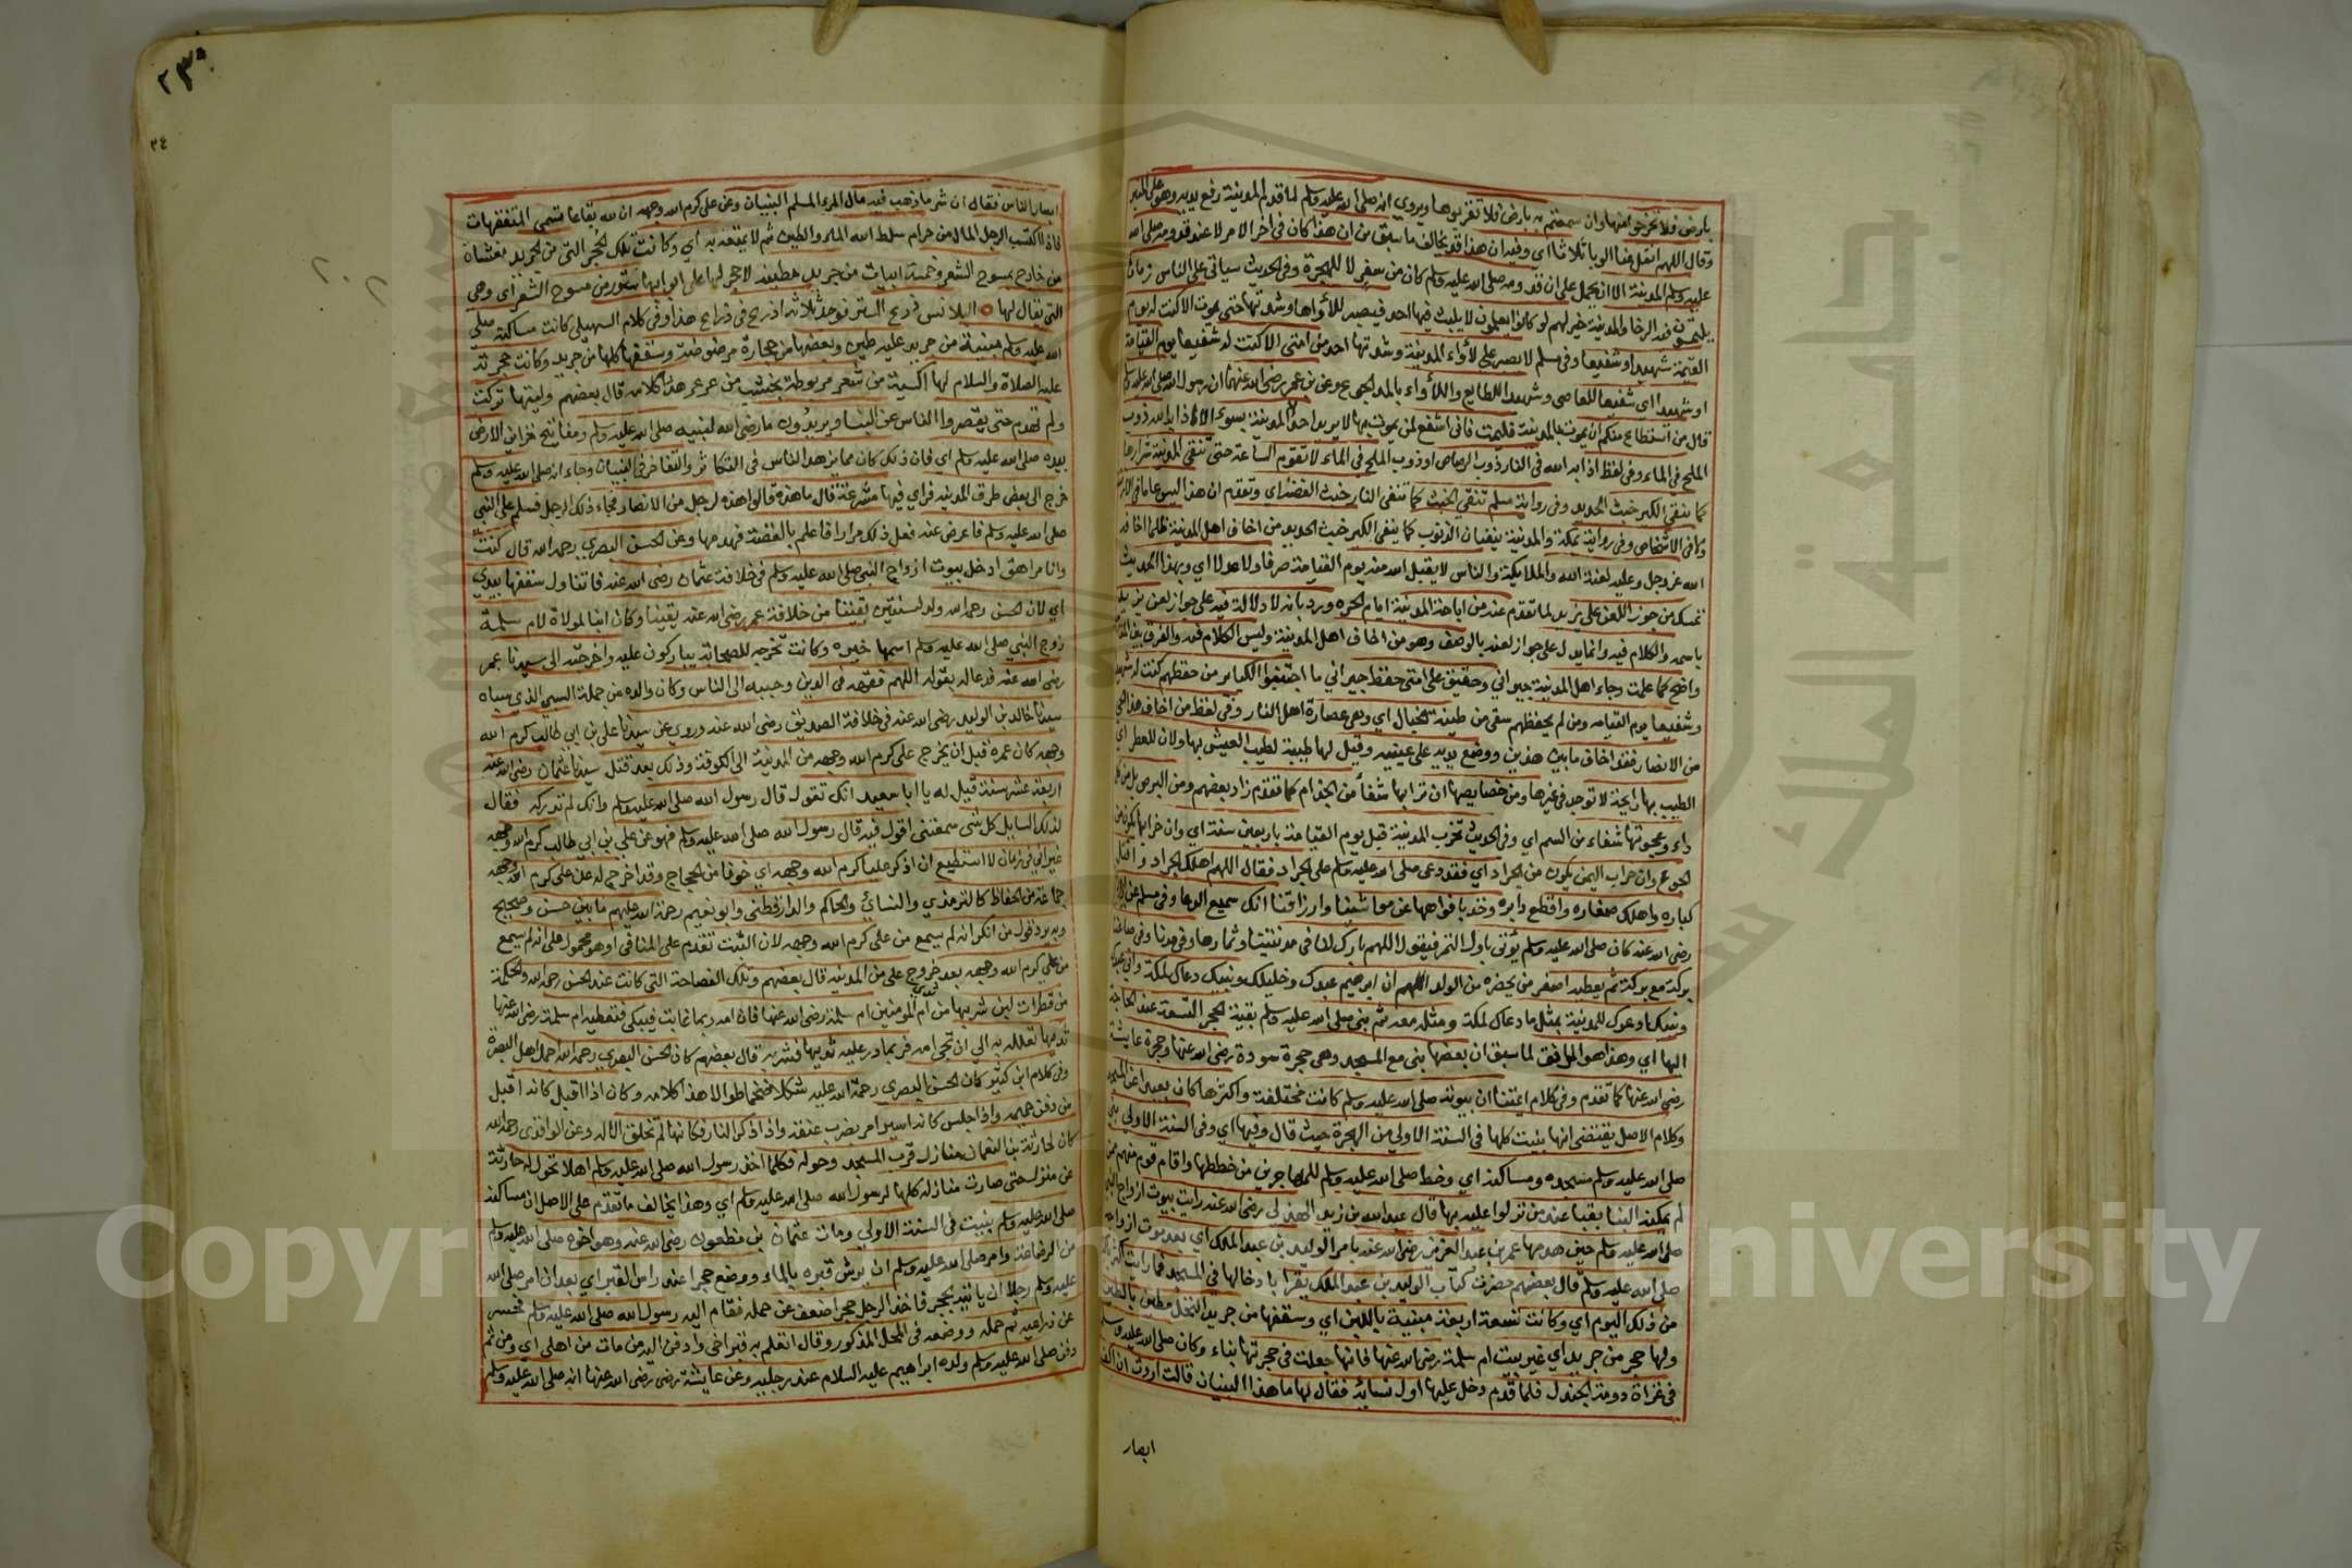 بارض فلا تخرجوا منها وان سمعتم به بارض فلا تقربوها ويروى انه صلى الله عليه وسلم لما قدم المدينة رفع يديه وهو على المنبر
وقال اللهم انقل عنا الوبا ثلاثا اي وفيه ان هذا قد يخالف ما سبق من ان هذا كان في اخر الامر لا عند قدومه صلى الله
عليه وسلم المدينة الا ان يحمل على ان قدومه صلى الله عليه وسلم كان من سفر لا للهجرة وفي الحديث سياتي على الناس زمان
يلتمسون فيه الرخا والمدينة خير لهم لو كانوا يعلمون لا يلبث فيها احد فيصبر للأوائها وشدتها حتى يموت الا كنت له يوم
القيمة شهيدا او شفيعا وفي مسلم لا يصبر على لأواء المدينة وشدتها احد من امتي الا كنت له شفيعا يوم القيامة
او شهيدا اي شفيعا للعاصي وشهيدا للطايع واللأواء بالمد الجوع وعن بن عمر رضي الله عنهما ان رسول الله صلى الله عليه وسلم
قال من استطاع منكم ان يموت بالمدينة فليمت فاني اشفع لمن يموت بها لا يريد احد المدينة بسوء الا اذابه الله ذوب
الملح في الماء وفي لفظ اذابه الله في النار ذوب الرصاص او ذوب الملح في الماء لا تقوم الساعة حتى تنفي المدينة شرارها
كما ينفي الكير خبث الحديد وفي رواية مسلم تنفي الخبث كما تنفي النار خبث الفضة اي وتقدم ان هذا ليس عاما في الازمنة
ولا في الاشخاص وفي رواية مكة والمدينة ينفيان الذنوب كما ينفي الكير خبث الحديد من اخاف اهل المدينة ظلما اخافه
الله عز وجل وعليه لعنة الله والملايكة والناس لا يقبل الله منه يوم القيامة صرفا ولا عدلا اي وبهذا الحديث
تمسك من جوز اللعن على يزيد لما تقدم عنه من اباحة المدينة ايام الحرة ورد بانه لا دلالة فيه على جواز لعن يزيد
باسمه والكلام فيه وانما يدل على جواز لعنه بالوصف وهو من اخاف اهل المدينة وليس الكلام فيه والفرق بين المقامين
واضح كما علمت وجاء اهل المدينة جيراني وحقيق على امتي حفظ جيراني ما اجتنبوا الكباير من حفظهم كنت له شهيدا
وشفيعا يوم القيامه ومن لم يحفظهم سقي من طينة الخبال اي وهي عصارة اهل النار وفي لفظ من اخاف هذا الحي
من الانصار فقد اخاف ما بين هذين ووضع يديه على جنبيه وقيل لها طيبة لطيب العيش بها ولان للعطر اي
الطيب بها رايحة لا توجد في غيرها ومن خصايصها ان ترابها شفأ من الجذام كما تقدم زاد بعضهم ومن البرص بل من كل
داء وعجوتها شفاء من السم اي وفي الحديث تخرب المدينة قبل يوم القيامة باربعين سنة اي وان خرابها يكون من
الجوع وان خراب اليمن يكون من الجراد اي فقد دعى صلى الله عليه وسلم على الجراد فقال اللهم اهلك الجراد واقتل
كباره واهلك صغاره واقطع دابره وخذ بافواهها عن معاشنا وارزاقنا انك سميع الدعا وفي مسلم عن
رضي الله عنه كان صلى الله عليه وسلم يؤتى باول الثمر فيقول اللهم بارك لنا في مدينتنا وثمارها وفي مدنا وفي صاعنا
بركة مع بركة ثم يعطيه اصغر من يحضره من الولد اللهم ان ابرهيم عبدك وخليلك ونبيك دعاك لمكة واني عبدك
ونبيك ادعوك للمدينة بمثل ما دعاك لمكة ومثله معه ثم بنى صلى الله عليه وسلم بقية الحجر التسعة عند الحاجة
اليها اي وهذا هو الموافق لما سبق ان بعضها بنى مع المسجد وهي حجرة سودة رضي الله عنها وحجرة عايشة
رضي الله عنها كما تقدم وفي كلام ايمتنا ان بيوته صلى الله عليه وسلم كانت مختلفة واكثرها كان بعيدا عن المسجد
وكلام الاصل يقتضي انها بنيت كلها في السنة الاولى من الهجرة حيث قال وفيها اي وفي السنة الاولى بنى
صلى الله عليه وسلم مسجده ومساكنه اي وخط صلى الله عليه وسلم للمهاجرين من خططها واقام قوم منهم ممن
لم يمكنه البنا بقبا عند من نزلوا عليه بها قال عبد الله بن زيد الهذلي رضي الله عنه رايت بيوت ازواج النبي
صلى الله عليه وسلم حين هدمها عمر بن عبد العزيز رضي الله عنه بامر الوليد بن عبد الملك اي بعد موت ازواجه
صلى الله عليه وسلم قال بعضهم حضرت كتاب الوليد بن عبد الملك يقرا بادخالها في المسجد فما رايت اكثر باكيا
من ذلك اليوم اي وكانت تسعة اربعة مبنية باللبن اي وسقفها من جريد النخل مطين بالطين
ولها حجر من جريد اي غير بيت ام سلمة رضي الله عنها فانها جعلت في حجرتها بناء وكان صلى الله عليه وسلم
في غزاة دومة الجندل فلما قدم دخل عليها اول نسائه فقال لها ما هذا البنيان قالت اردت ان اكف
ابصار
ابصار الناس فقال ان شر ما ذهب فيه مال المرء المسلم البنيان وعن علي كرم الله وجهه ان لله بقاعا تسمى المتفقهات
فاذا اكتسب الرجل المال من حرام سلط الله الماء والطين ثم لا يمتعه به اي وكانت تلك الحجر التي من الجريد مغشاة
من خارج بمسوح الشعر وخمسة ابيات من جريد مطينة لا حجر لها على ابوابها ستور من مسوح الشعر اي وهي
التي يقال لها البلانس ذرع الستر فوجد ثلاثة اذرع في ذراع هذا وفي كلام السهيلي كانت مساكنه صلى
الله عليه وسلم مبنية من جريد عليه طين وبعضها من حجارة مرضوضة وسقفها كلها من جريد وكانت حجرته
عليه الصلاة والسلام لها اكسية من شعر مربوطة بخشب من عرعر هذا كلامه قال بعضهم وليتها تركت
ولم تهدم حتى يقصروا الناس عن البنا ويريدون ما رضي الله لنبيه صلى الله عليه وسلم ومفاتيح خزاين الارض
بيده صلى الله عليه وسلم اي فان ذلك كان مما يزهد الناس في التكاثر والتفاخر في البنيان وجاء انه صلى الله عليه وسلم
خرج الى بعض طرق المدينه فراي فيها مشرعة قال ما هذه قالوا هذه لرجل من الانصار فجاء ذلك الرجل فسلم على النبي
صلى الله عليه وسلم فاعرض عنه فعل ذلك مرارا فاعلم بالقصة فهدمها وعن الحسن البصري رحمه الله قال كنت
وانا مراهق ادخل بيوت ازواج النبي صلى الله عليه وسلم في خلافة عثمان رضي الله عنه فاتناول سقفها بيدي
اي لان الحسن رحمه الله ولد لسنتين بقيتا من خلافة عمر رضي الله عنه يقينا وكان ابنا لمولاة لام سلمة
زوج النبي صلى الله عليه وسلم اسمها خيره وكانت تخرجه للصحابة يباركون عليه واخرجته الى سيدنا عمر
رضي الله عنه فدعا له بقوله اللهم فقهه في الدين وحببه الى الناس وكان والده من جملة السبي الذي سباه
سيدنا خالد بن الوليد رضي الله عنه في خلافة الصديق رضي الله عنه وروي عن سيدنا علي بن ابي طالب كرم الله
وجهه كان عمره قبل ان يخرج علي كرم الله وجهه من المدينة الى الكوفة وذلك بعد قتل سيدنا عثمان رضي الله عنه
اربعة عشر سنة قيل له يا ابا سعيد انك تقول قال رسول الله صلى الله عليه وسلم وانك لم تدركه فقال
لذلك السايل كل شي سمعتني اقول فيه قال رسول الله صلى الله عليه وسلم فهو عن علي بن ابي طالب كرم الله وجهه
غير اني في زمان لا استطيع ان اذكر عليا كرم الله وجهه اي خوفا من الحجاج وقد اخرج له عن علي كرم الله وجهه
جماعة من الحفاظ كالترمذي والنسائي والحاكم والدارقطني وابو نعيم رحمة الله عليهم ما بين حسن وصحيح
وبه يرد قول من انكر انه لم يسمع من علي كرم الله وجهه لان المثبت تقدم على المنافي او هو محمول على انه لم يسمع
من علي كرم الله وجهه بعد خروج علي من المدينة قال بعضهم وتلك الفصاحة التي كانت عند الحسن رحمه الله والحكمة
من قطرات لبن شربها من ثدي ام المومنين ام سلمة رضي الله عنها فان امه ربما غابت فيبكي فتعطيه ام سلمة رضي الله عنها
ثديها تعلله به الى ان تجي امه فربما در عليه ثديها فشربه قال بعضهم كان الحسن البصري رحمه الله اجمل اهل البصرة
وفي كلام ابن كثير كان الحسن البصري رحمة الله عليه شكلا ضخما طوالا هذا كلامه وكان اذا اقبل كانه اقبل
من دفن حميمه واذا جلس كانه اسير امر بضرب عنقه واذا ذكر النار فكانها لم تخلق الا له وعن الواقدي رحمه الله
كان لحارثة بن النعمان منازل قرب المسجد وحوله فكلما اخذ رسول الله صلى الله عليه وسلم اهلا تحول له حارثة
عن منزل حتى صارت منازله كلها لرسول الله صلى الله عليه وسلم اي وهذا يخالف ما تقدم على الاصل ان مساكنه
صلى الله عليه وسلم بنيت في السنة الاولى ومات عثمان بن مظعون رضي الله عنه وهو اخوه صلى الله عليه وسلم
من الرضاعة وامر صلى الله عليه وسلم ان يرش قبره بالماء ووضع حجرا عند راس القبر اي بعد ان امر صلى الله
عليه وسلم رجلا ان ياتيه بحجر فاخذ الرجل حجرا ضعف عن حمله فقام اليه رسول الله صلى الله عليه وسلم فحسر
عن ذراعيه ثم حمله ووضعه في المحل المذكور وقال اتعلم به قبر اخي وادفن اليه من مات من اهلي اي ومن ثم
دفن صلى الله عليه وسلم ولده ابراهيم عليه السلام عند رجليه وعن عايشة رضي رضي الله عنها انه صلى الله عليه وسلم
٣٤
Copyright © King Saud University
جامعة الملك سعود